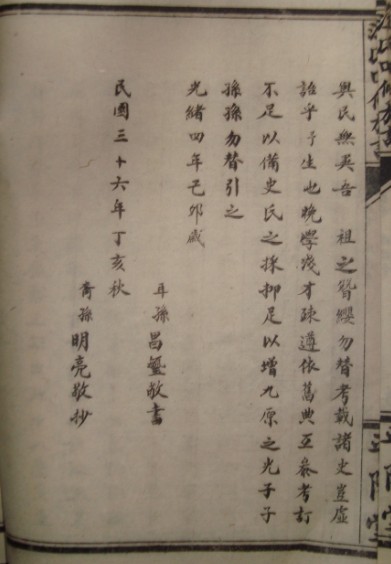 與民無異吾　祖之簪纓勿替考載諸史豈虛
誰乎予生也晚學淺才疎遵依舊典互叅考訂
不足以備史氏之採抑足以增九原之光子子
孫孫勿替引之
光緒四年己夘歲
耳孫昌璽敬書
民國三十六年丁亥秋
裔孫明亮敬抄